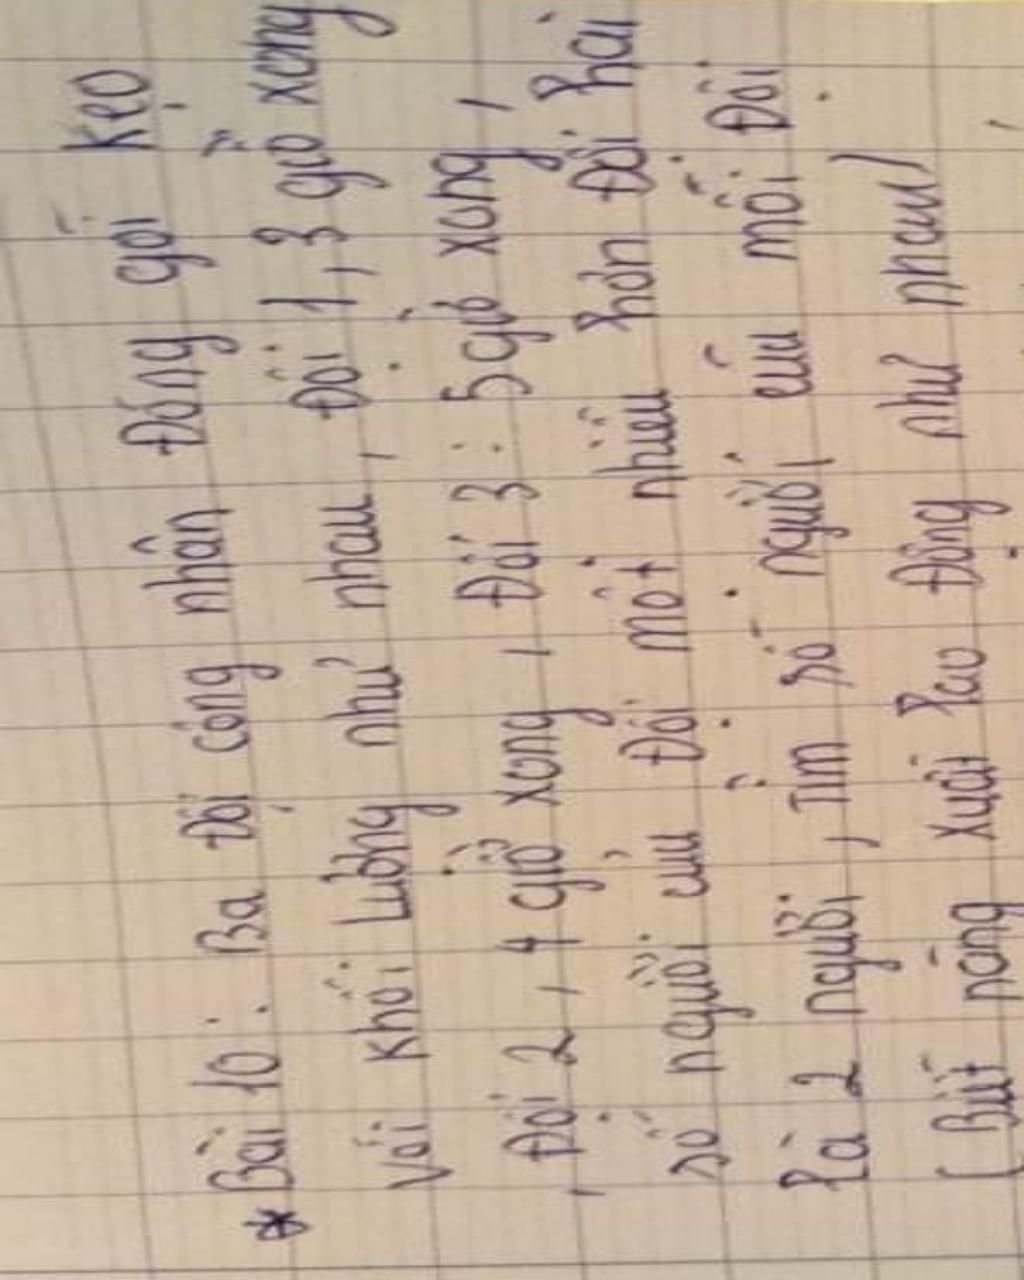 * Bài 10: Ba đội công nhân đóng gói kẹo
với khối lượng như nhau, Đội 1, 3 giờ xong
, Đội 2, 4 giờ xong, Đội 3: 5 giờ xong,
số người của đội một nhiều hơn đội hai
là 2 người, Tìm số người của mỗi đội.
(Biết năng xuất lao động như nhau)